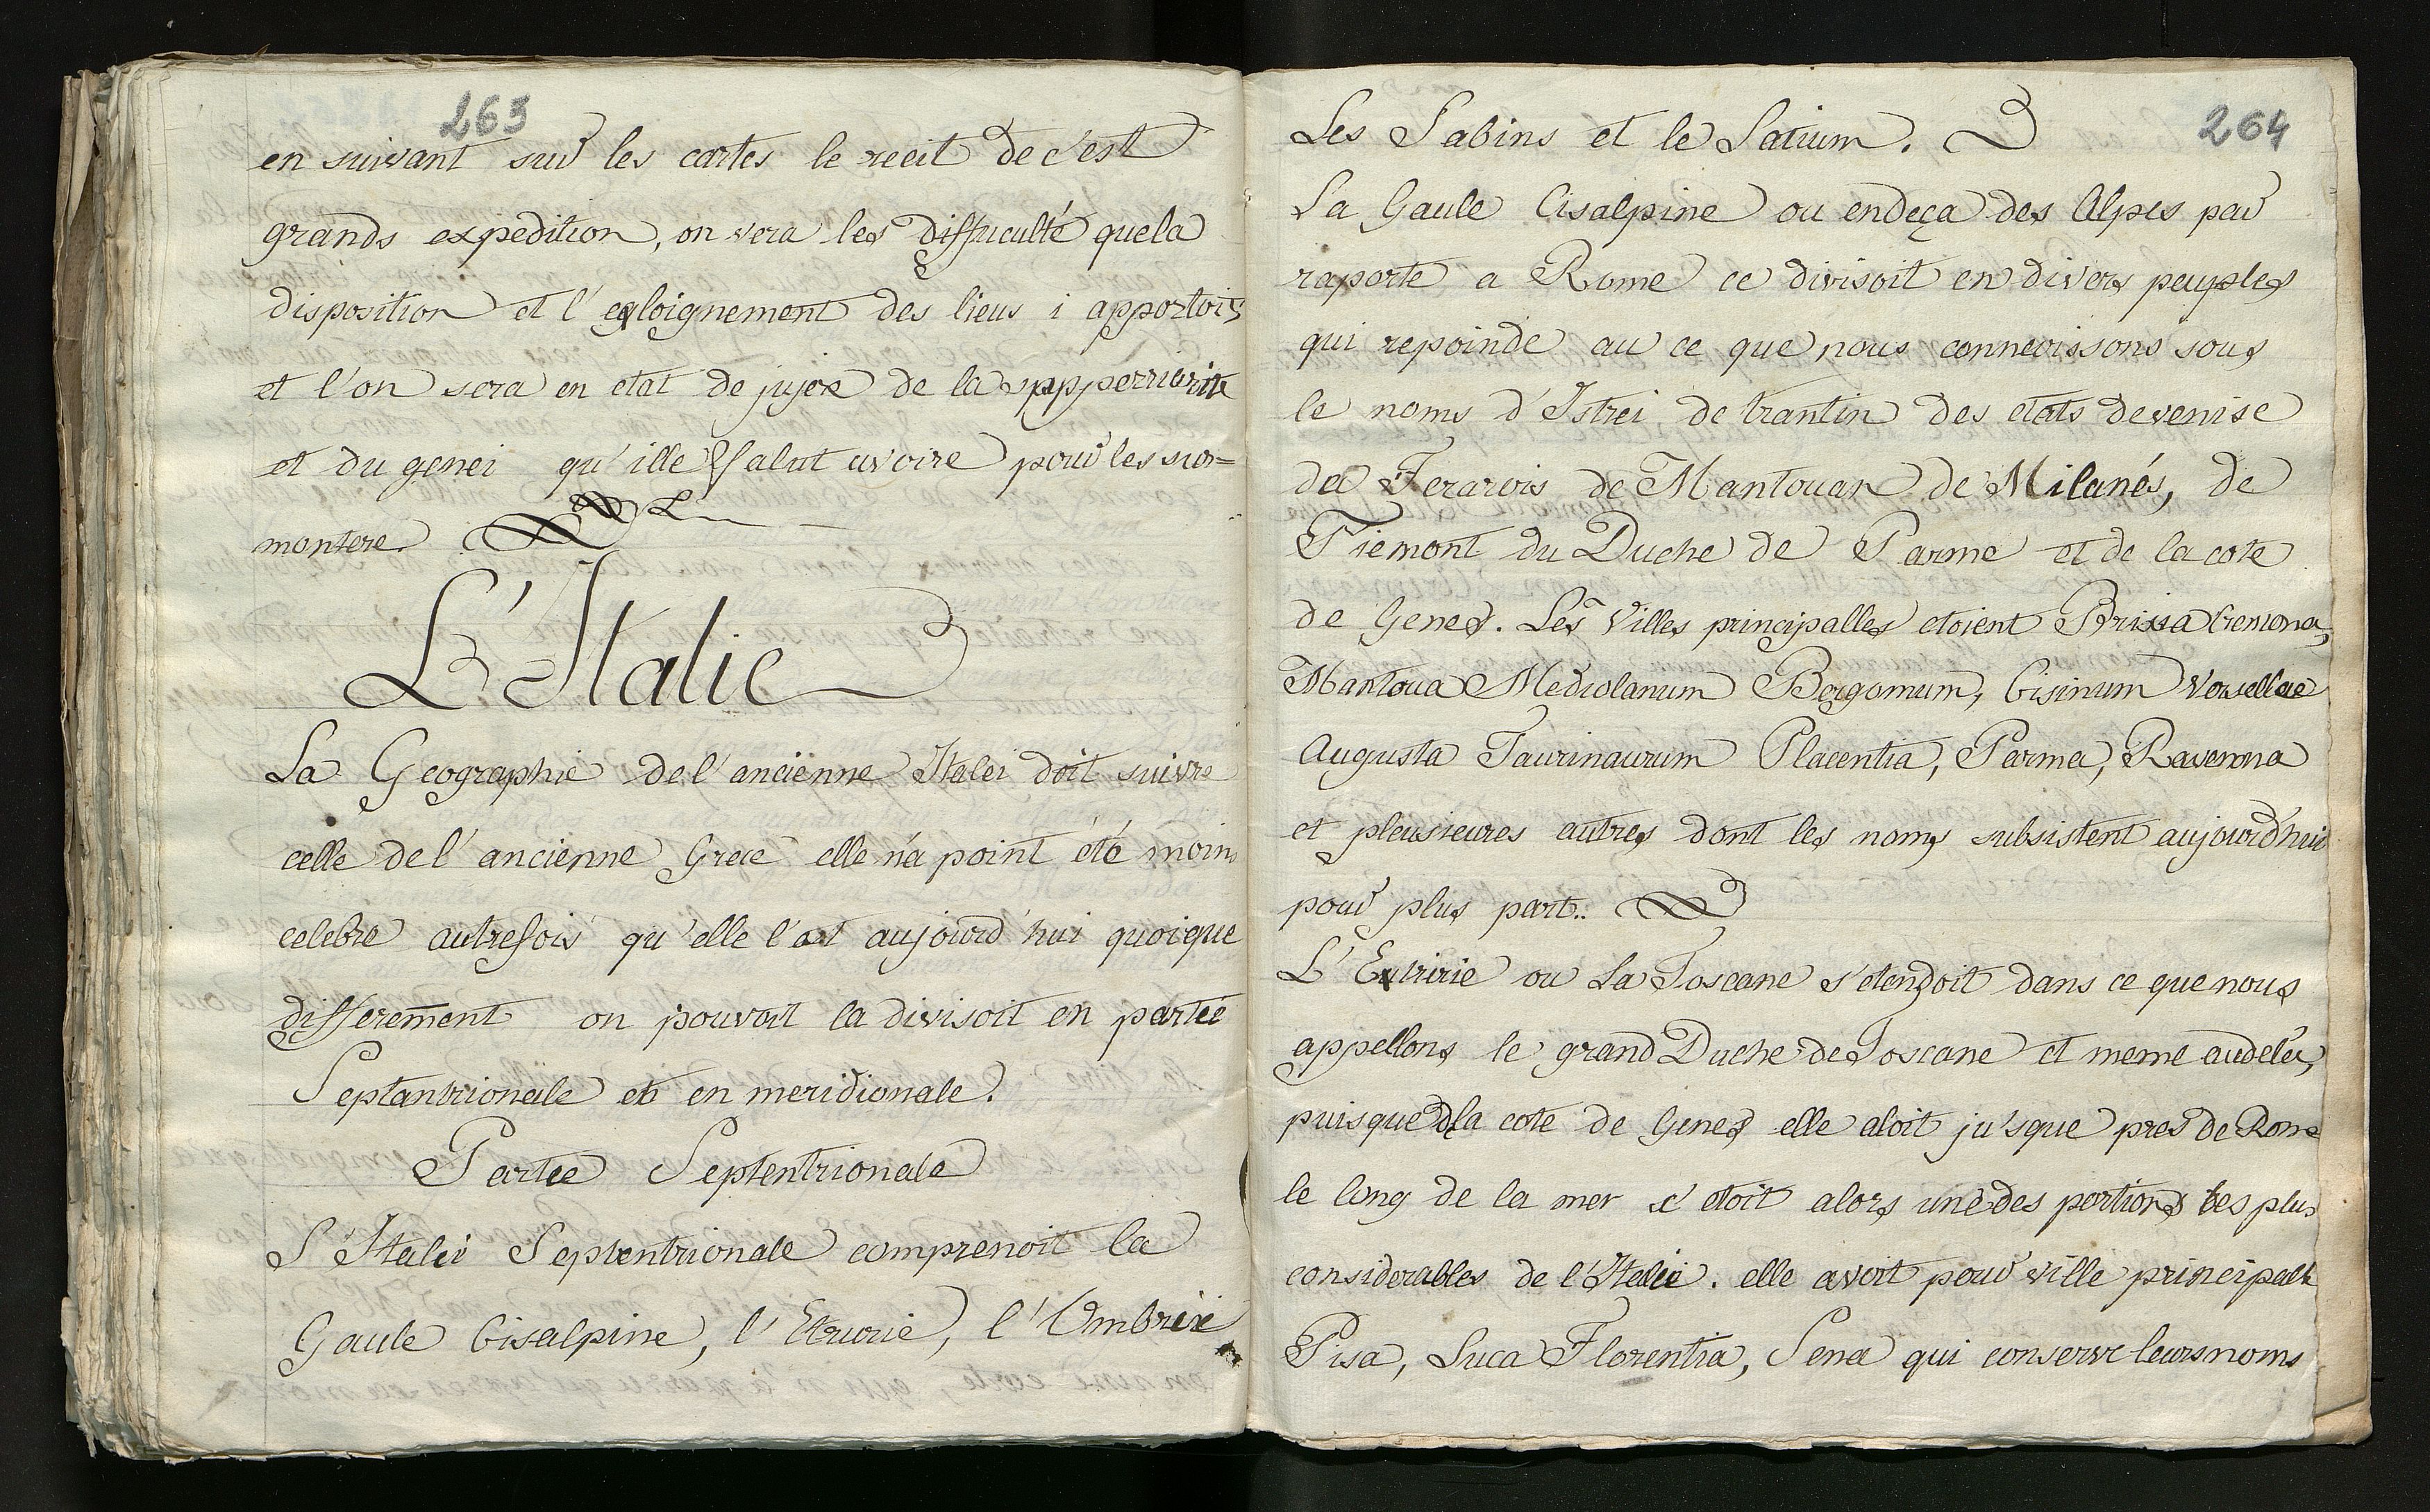 263
en suivant sur les cartes le recit de c'est
grands expedition, on vera les diffuculté que la
disposition et l'egloignement des lieus i apportois
et l'on sera en etat de jujer de la
et du genei qu'ille falut avoire pour les sur=
montere.
L'Italie
La Geographie de l'ancienne Italei doit suivre
celle de l'ancienne Grece elle n'a point été moins
celebre autrefois qu'elle l'est aujourd'hui quoique
differement on pouvoit la divisoit en partie
Septantrionale et en meridionale.
Partie Septentrionale
L'Italei Septentrionale comprenoit la
Gaule Cisalpine, l'Etrurie, l'Ombrie
264
Les Sabins et le Latium.
La Gaule Cisalpine ou endeça des Alpes par
raporte a Rome ce divisoit en divers peuples
qui repoinde au ce que nous connevissons sous
le noms d'Istrei de trantin des etats de venise
de Ferarois de Mantouan de Milanés, de
Piemont du Duche de Parme et de la cote
de Genes. Les Villes principalles etoient Brixia Cremona,
Mantoua Mediolanum Bergomum, Cisinum Versellae
Augusta Taurinaurum Placentia, Parma, Ravenna
et pleusieures autres dont les noms subsistent aujourd'hui
pour plus part..
L' ou La Toscane s'etendoit dans ce que nous
appellons le grand Duche de Toscane et meme audela,
puisque d la cote de Genes elle aloit ju'sque pres de Rome
le long de la mer c'etoit alors une des portions les plus
considerables de l'Italie. elle avoit pour ville principale
Pisa, Luca Florentia, Sena qui conserve leurs noms